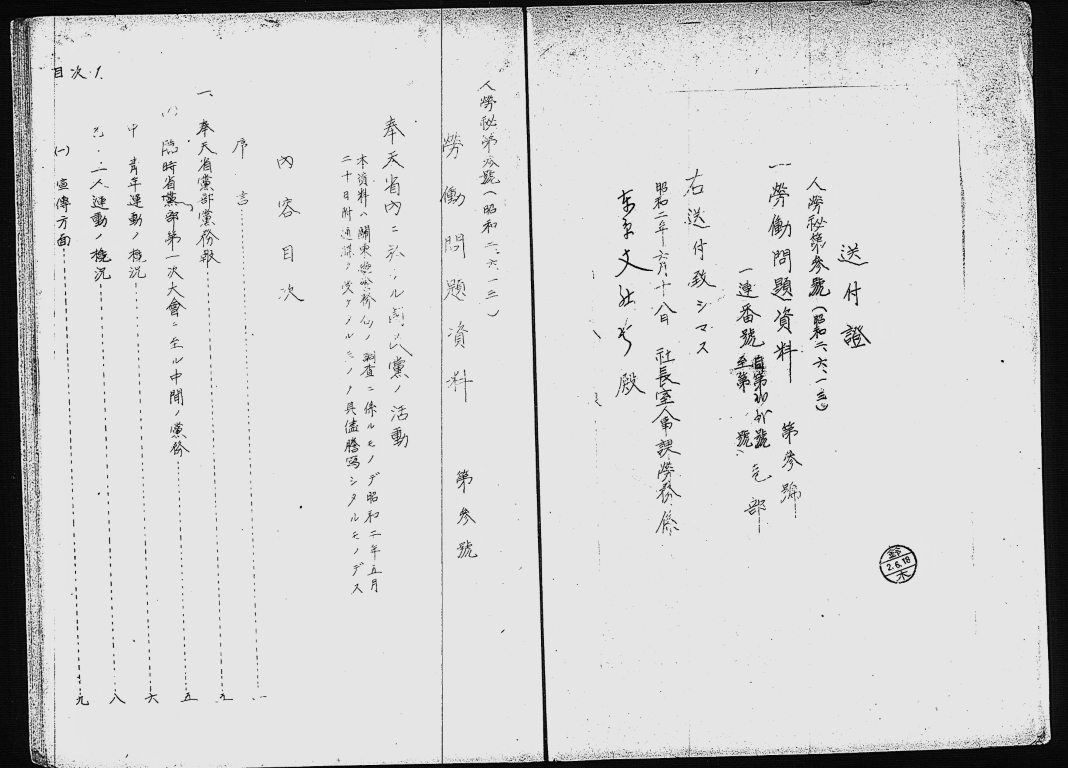 送付證
人勞秘第參號(昭和二、六、一三)
一 勞働問題資料 第參號
一連番號 自第 號
至第 號 部
右送付致シマス
昭和二年六月十八日 社長室人事課勞務係
東京支社長殿
鈴木
2.6.18
人勞秘第參號(昭和二、六、一三)
勞働問題資料 第參號
奉天省內ニ於ケル國民黨ノ活動
本資料ハ關東廳 ノ調査ニ係ルモノデ昭和二年五月
二十日附通牒ヲ受ケタルモノヲ其儘謄寫シタルモノデス
內容目次
序言 一
一、奉天省黨部黨務報
(1) 臨時省黨部第一次大會ニ至ル中間ノ黨務 五
青年運動ノ槪況 六
工人運動ノ槪況 八
(一) 宣傳方面 九
目次.1.